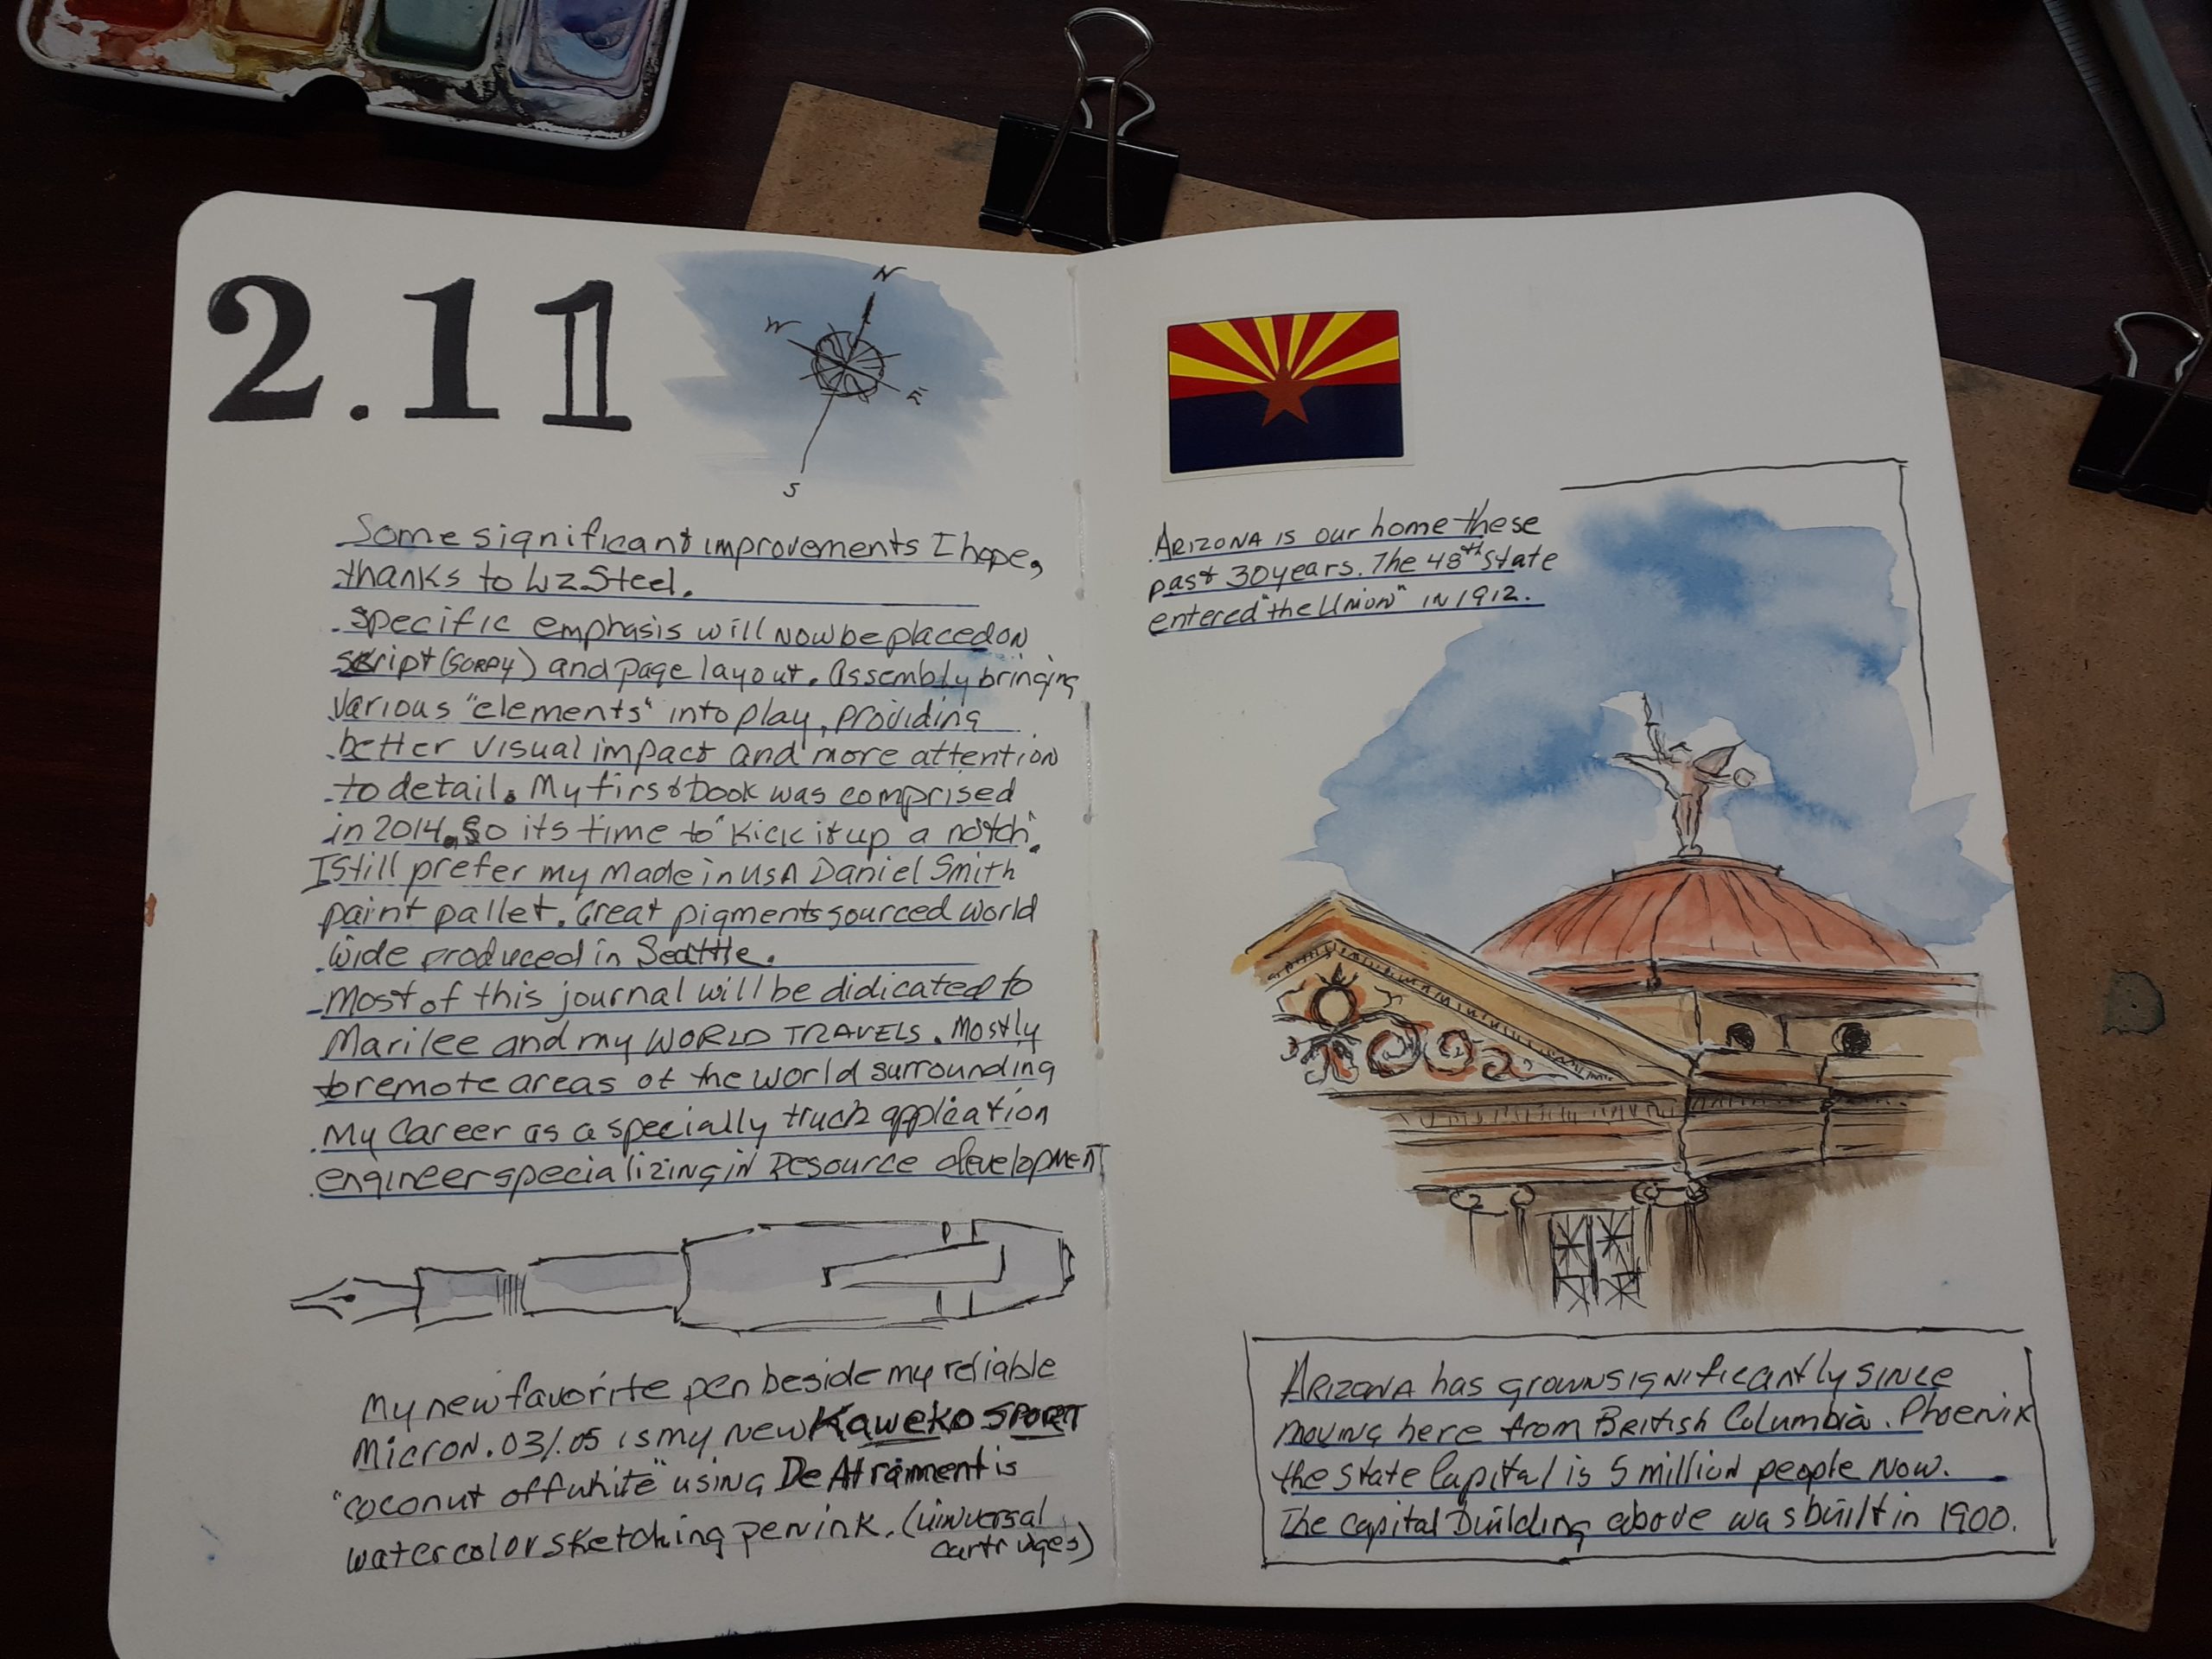 2.11
N
W
E
S
Some significant improvements I hope,
thanks to Liz Steel.
Specific emphasis will now be placed on
script (sorry) and page layout. Assembly bringing
various "elements" into play, providing
better visual impact and more attention
to detail. My first book was comprised
in 2014. So its time to "kick it up a notch".
I still prefer my made in USA Daniel Smith
paint pallet. Great pigments sourced world
wide produced in Seattle.
Most of this journal will be didicated to
Marilee and my WORLD TRAVELS. Mostly
to remote areas of the world surrounding
my career as a specially truck application
engineer specializing in Resource development
My new favorite pen beside my reliable
Micron .03/.05 is my new Kaweko SPORT
"coconut offwhite" using De Atrament is
watercolor sketching pen ink. (universal
cartridges)
ARIZONA is our home these
past 30 years. The 48th state
entered "the Union" in 1912.
ARIZONA has grown significantly since
moving here from British Columbia. Phoenix
the state Capital is 5 million people now.
The capital building above was built in 1900.